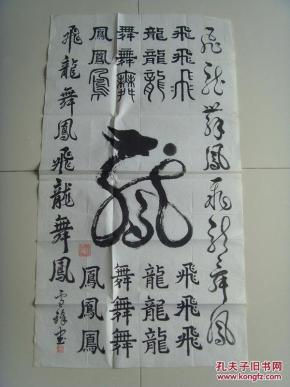 飛龍舞鳳飛龍舞鳳
飛飛飛
龍龍龍
舞舞舞
鳳鳳鳳
飛飛飛
龍龍龍
舞舞舞
鳳鳳鳳
飛龍舞鳳飛龍舞鳳
孔夫子旧书网